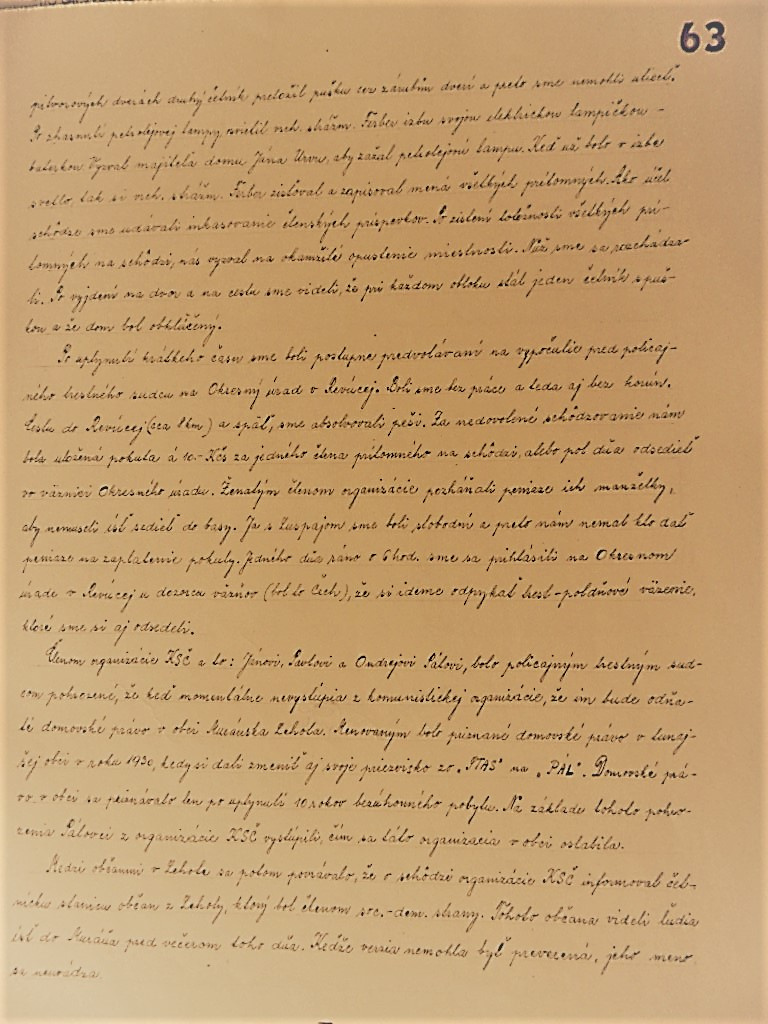 63
pitvorových dverách druhý četník preložil pušku cez zárubňu dverí a preto sme nemohli utiecť.
Po zhasnutí petrolejovej lampy osvietil vrch. strážm. Ferber izbu svojou elektrickou lampičkou -
baterkou. Vyzval majiteľa domu Jána Urvu, aby zažal petrolejovú lampu. Keď už bolo v izbe
svetlo, tak si vrch. strážm. Ferber zisťoval a zapisoval mená všetkých prítomných. Ako účel
schôdze sme udávali inkasovanie členských príspevkov. Po zistení totožnosti všetkých prí-
tomných na schôdzi, nás vyzval na okamžité opustenie miestnosti. Nuž sme sa rozchádza-
li. Po vyjdení na dvor a na cestu sme videli, že pri každom obloku stál jeden četník s puš-
kou a že dom bol obkľúčený.
Po uplynutí krátkeho času sme boli postupne predvolávaní na vypočutie pred policaj-
ného trestného sudcu na Okresný úrad v Revúcej. Boli sme bez práce a teda aj bez korún.
Cestu do Revúcej (cca 8 km) a späť, sme absolvovali peši. Za nedovolené schôdzovanie nám
bola uložená pokuta á 10.- Kčs za jedného člena prítomného na schôdzi, alebo pol dňa odsedieť
vo väznici Okresného úradu. Ženatým členom organizácie pozháňali peniaze ich manželky,
aby nemuseli ísť sedieť do basy. Ja s Zuspajom sme boli slobodní a preto nám nemal kto dať
peniaze na zaplatenie pokuty. Jedného dňa ráno o 6 hod. sme sa prihlásili na Okresnom
úrade v Revúcej u dozorcu väzňov (bol to Čech), že si ideme odpykať trest - poldňové väzenie,
ktoré sme si aj odsedeli.
Členom organizácie KSČ a to: Jánovi, Pavlovi a Ondrejovi Pálovi, bolo policajným trestným sud-
com pohrozené, že keď momentálne nevystúpia z komunistickej organizácie, že im bude odňa-
té domovské právo v obci Muránska Lehota. Menovaným bolo priznané domovské právo v tunaj-
šej obci v roku 1930, kedy si dali zmeniť aj svoje priezvisko zo na „PÁL". Domovské prá-
vo v obci sa priznávalo len po uplynutí 10 rokov bezúhonného pobytu. Na základe tohoto pohro-
zenia Pálovci z organizácie KSČ vystúpili, čím sa táto organizácia v obci oslabila.
Medzi občanmi v Lehote sa potom povrávalo, že o schôdzi organizácie KSČ informoval čet-
nícku stanicu občan z Lehoty, ktorý bol členom soc.-dem. strany. Tohoto občana videli ľudia
ísť do Muráňa pred večerom toho dňa. Keďže verzia nemohla byť preverená, jeho meno
sa neuvádza.